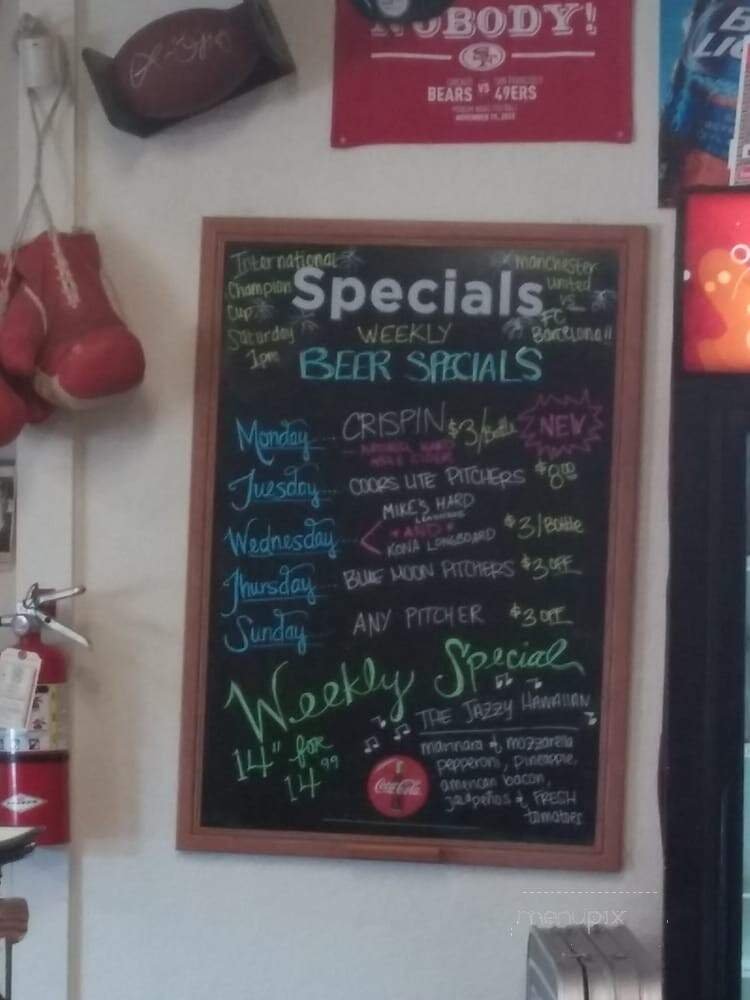 NOBODY!
SF
BEARS VS 49ERS
NOVEMBER 19, 2012
LIG
International
Champion
Cup
Saturday
1pm
Specials
Manchester
United
vs
FC
Barcelona!!
WEEKLY
BEER SPECIALS
Monday... CRISPIN $3/Bottle NEW
Tuesday... COORS LITE PITCHERS $8.00
MIKE'S HARD
LEMONADE
Wednesday... < *AND* $3/Bottle
KONA LONGBOARD
Thursday... BLUE MOON PITCHERS $3 OFF
Sunday... ANY PITCHER $3 OFF
Weekly Special
THE JAZZY HAWAIIAN
14" for
14.99
marinara & mozzarella
pepperoni, pineapple,
american bacon,
jalapeños & FRESH
tomatoes
Coca-Cola
menupix